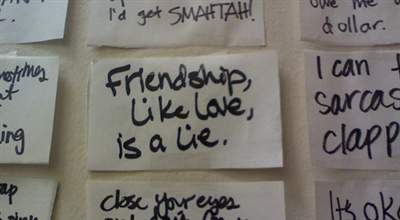 I'd get SMAHTAH!
owe me
dollar.
Friendship,
Like Love,
is a Lie.
I can
sarcas
clapp
ing
close your eyes
It's ok